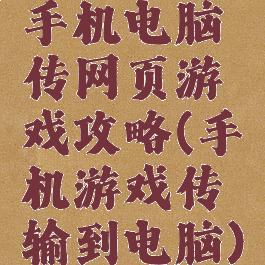 手机电脑
传网页游
戏攻略(手
机游戏传
输到电脑)